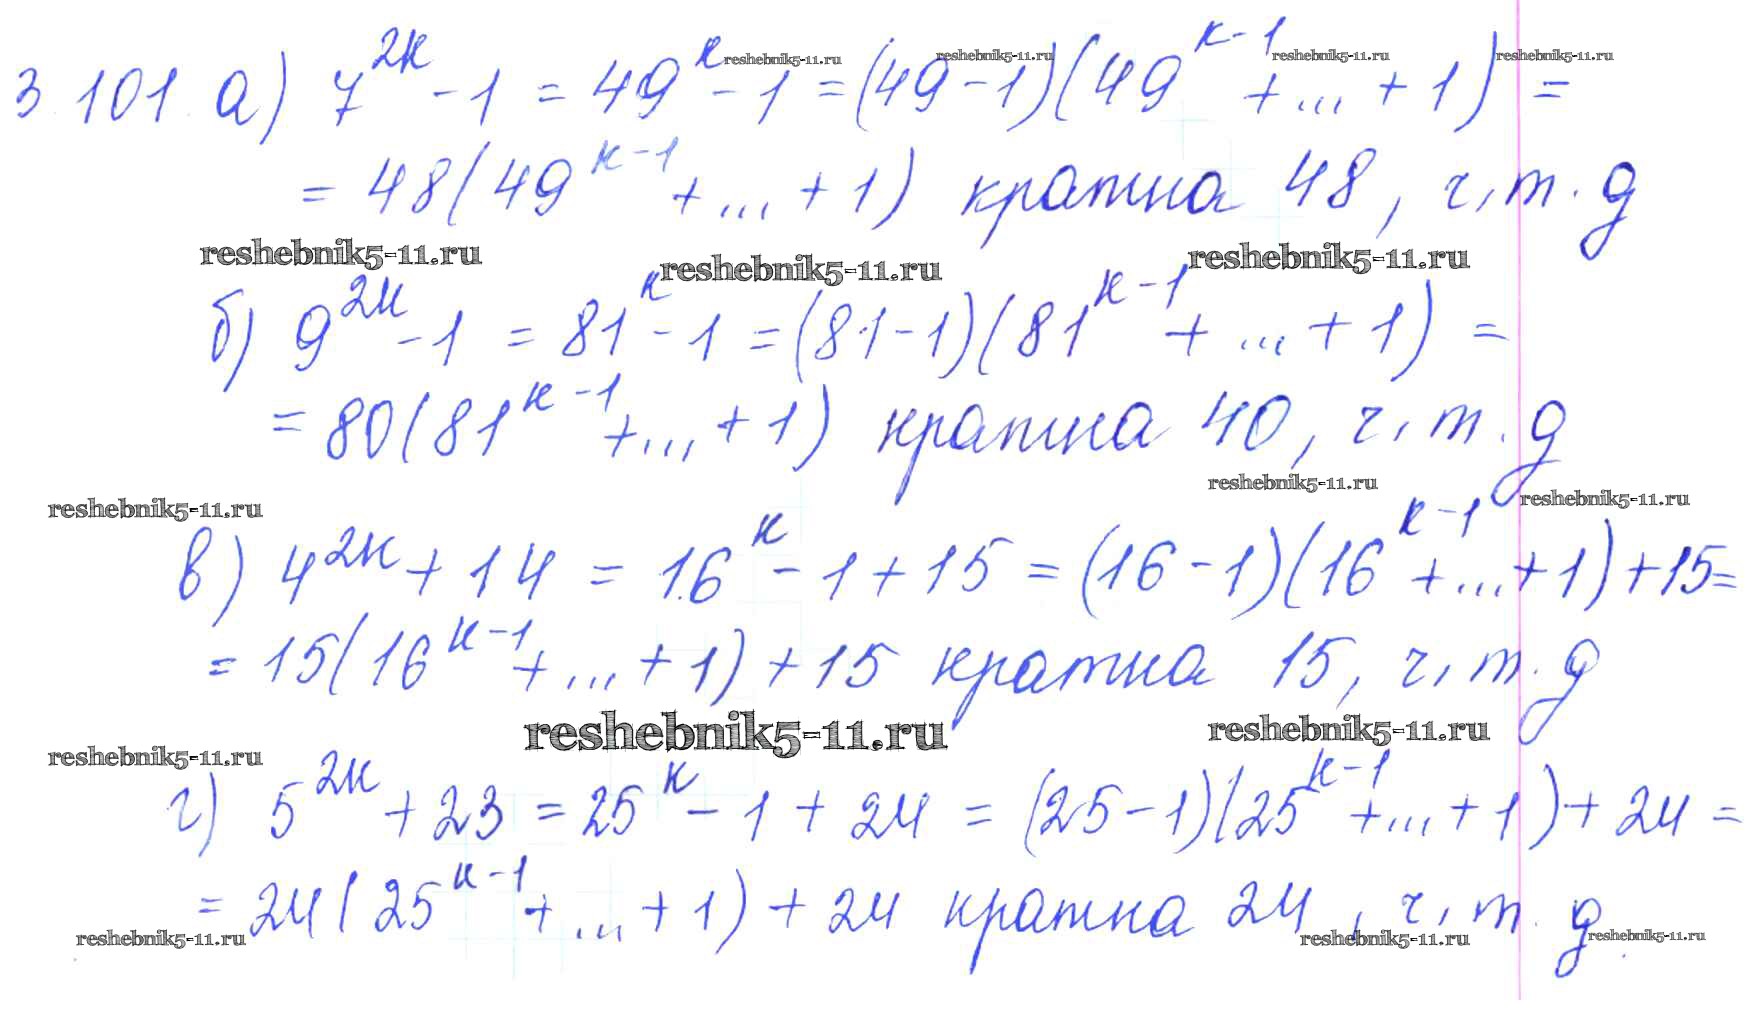 3.101. а) 7^{2k} - 1 = 49^k - 1 = (49 - 1)(49^{k-1} + ... + 1) =
reshebnik5-11.ru reshebnik5-11.ru reshebnik5-11.ru reshebnik5-11.ru
= 48(49^{k-1} + ... + 1) кратна 48, ч.т.д
reshebnik5-11.ru reshebnik5-11.ru reshebnik5-11.ru
б) 9^{2k} - 1 = 81^k - 1 = (81 - 1)(81^{k-1} + ... + 1) =
= 80(81^{k-1} + ... + 1) кратна 40, ч.т.д
reshebnik5-11.ru reshebnik5-11.ru reshebnik5-11.ru
в) 4^{2k} + 14 = 16^k - 1 + 15 = (16 - 1)(16^{k-1} + ... + 1) + 15 =
= 15(16^{k-1} + ... + 1) + 15 кратна 15, ч.т.д
reshebnik5-11.ru reshebnik5-11.ru reshebnik5-11.ru
г) 5^{2k} + 23 = 25^k - 1 + 24 = (25 - 1)(25^{k-1} + ... + 1) + 24 =
= 24(25^{k-1} + ... + 1) + 24 кратна 24, ч.т.д
reshebnik5-11.ru reshebnik5-11.ru reshebnik5-11.ru